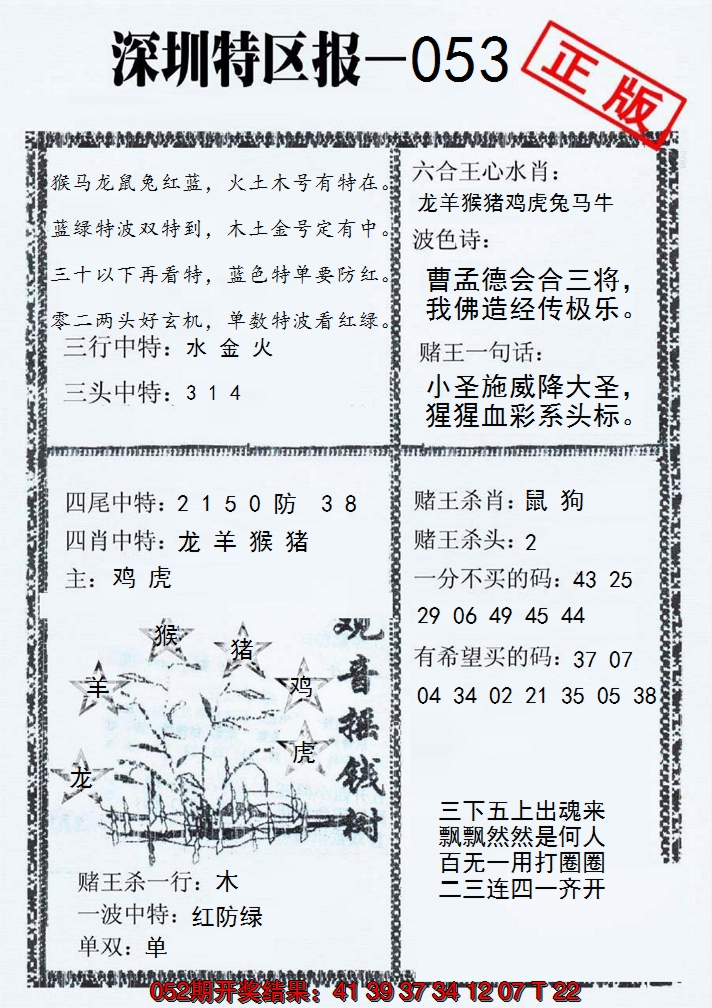 深圳特区报—053
正版
猴马龙鼠兔红蓝，火土木号有特在。
蓝绿特波双特到，木土金号定有中。
三十以下再看特，蓝色特单要防红。
零二两头好玄机，单数特波看红绿。
三行中特：水 金 火
三头中特：3 1 4
六合王心水肖：
龙羊猴猪鸡虎兔马牛
波色诗：
曹孟德会合三将，
我佛造经传极乐。
赌王一句话：
小圣施威降大圣，
猩猩血彩系头标。
四尾中特：2 1 5 0 防 3 8
四肖中特：龙 羊 猴 猪
主：鸡 虎
观音摇钱树
猴
猪
羊
鸡
虎
龙
赌王杀一行：木
一波中特：红防绿
单双：单
赌王杀肖：鼠 狗
赌王杀头：2
一分不买的码：43 25
29 06 49 45 44
有希望买的码：37 07
04 34 02 21 35 05 38
三下五上出魂来
飘飘然然是何人
百无一用打圈圈
二三连四一齐开
052期开奖结果：41 39 37 34 12 07 T 22